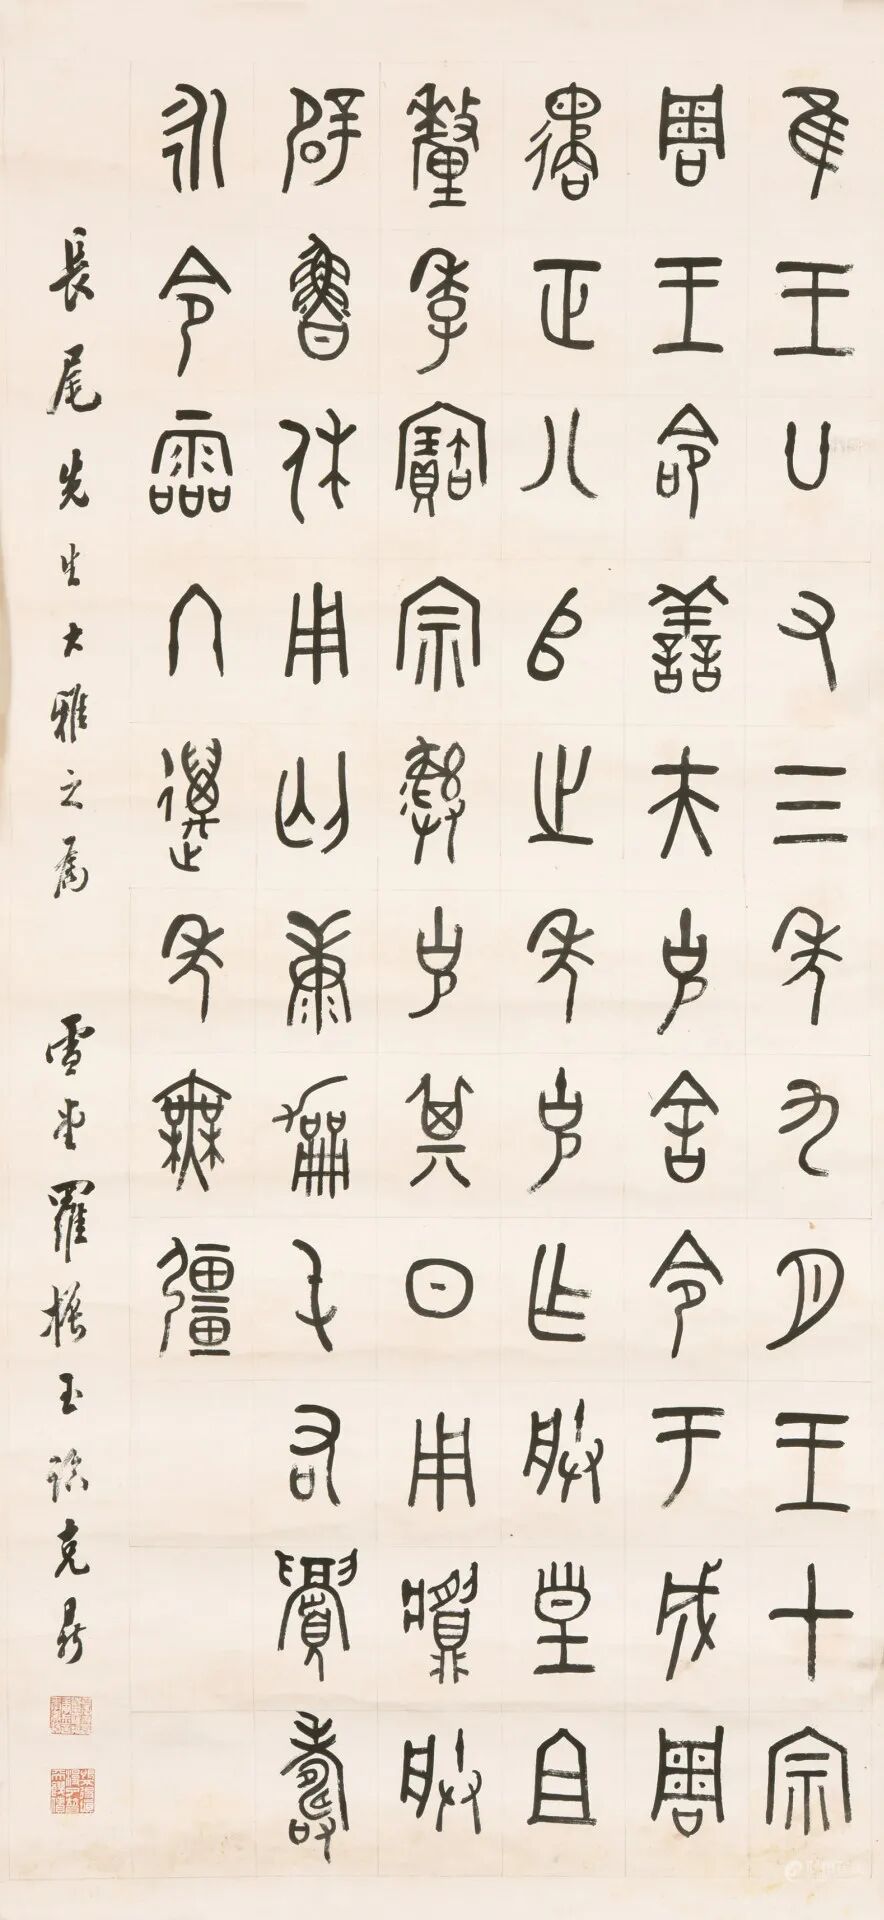 隹王廿又三年九月王才宗
周王命善夫克舍令于成周
遹正八𠂤之年克乍朕皇且
釐季寶宗彝克其日用䵼朕
辟魯休用匄康屯右眉壽
永令霝冬邁年無彊
長尾先生大雅之屬 雪堂羅振玉臨克鼎